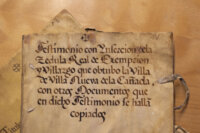 Testimonio con Insercion dela
Zedula Real de Exempcion
y Villazgo que obtubo la Villa
de Villa Nueva dela Cañada,
con otros Documentos que
en dicho Testimonio se hallan
copiados